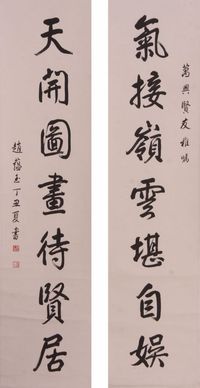 萬興賢友雅囑
氣接嶺雲堪自娛
天開圖畫待賢居
趙蘊玉丁丑夏書